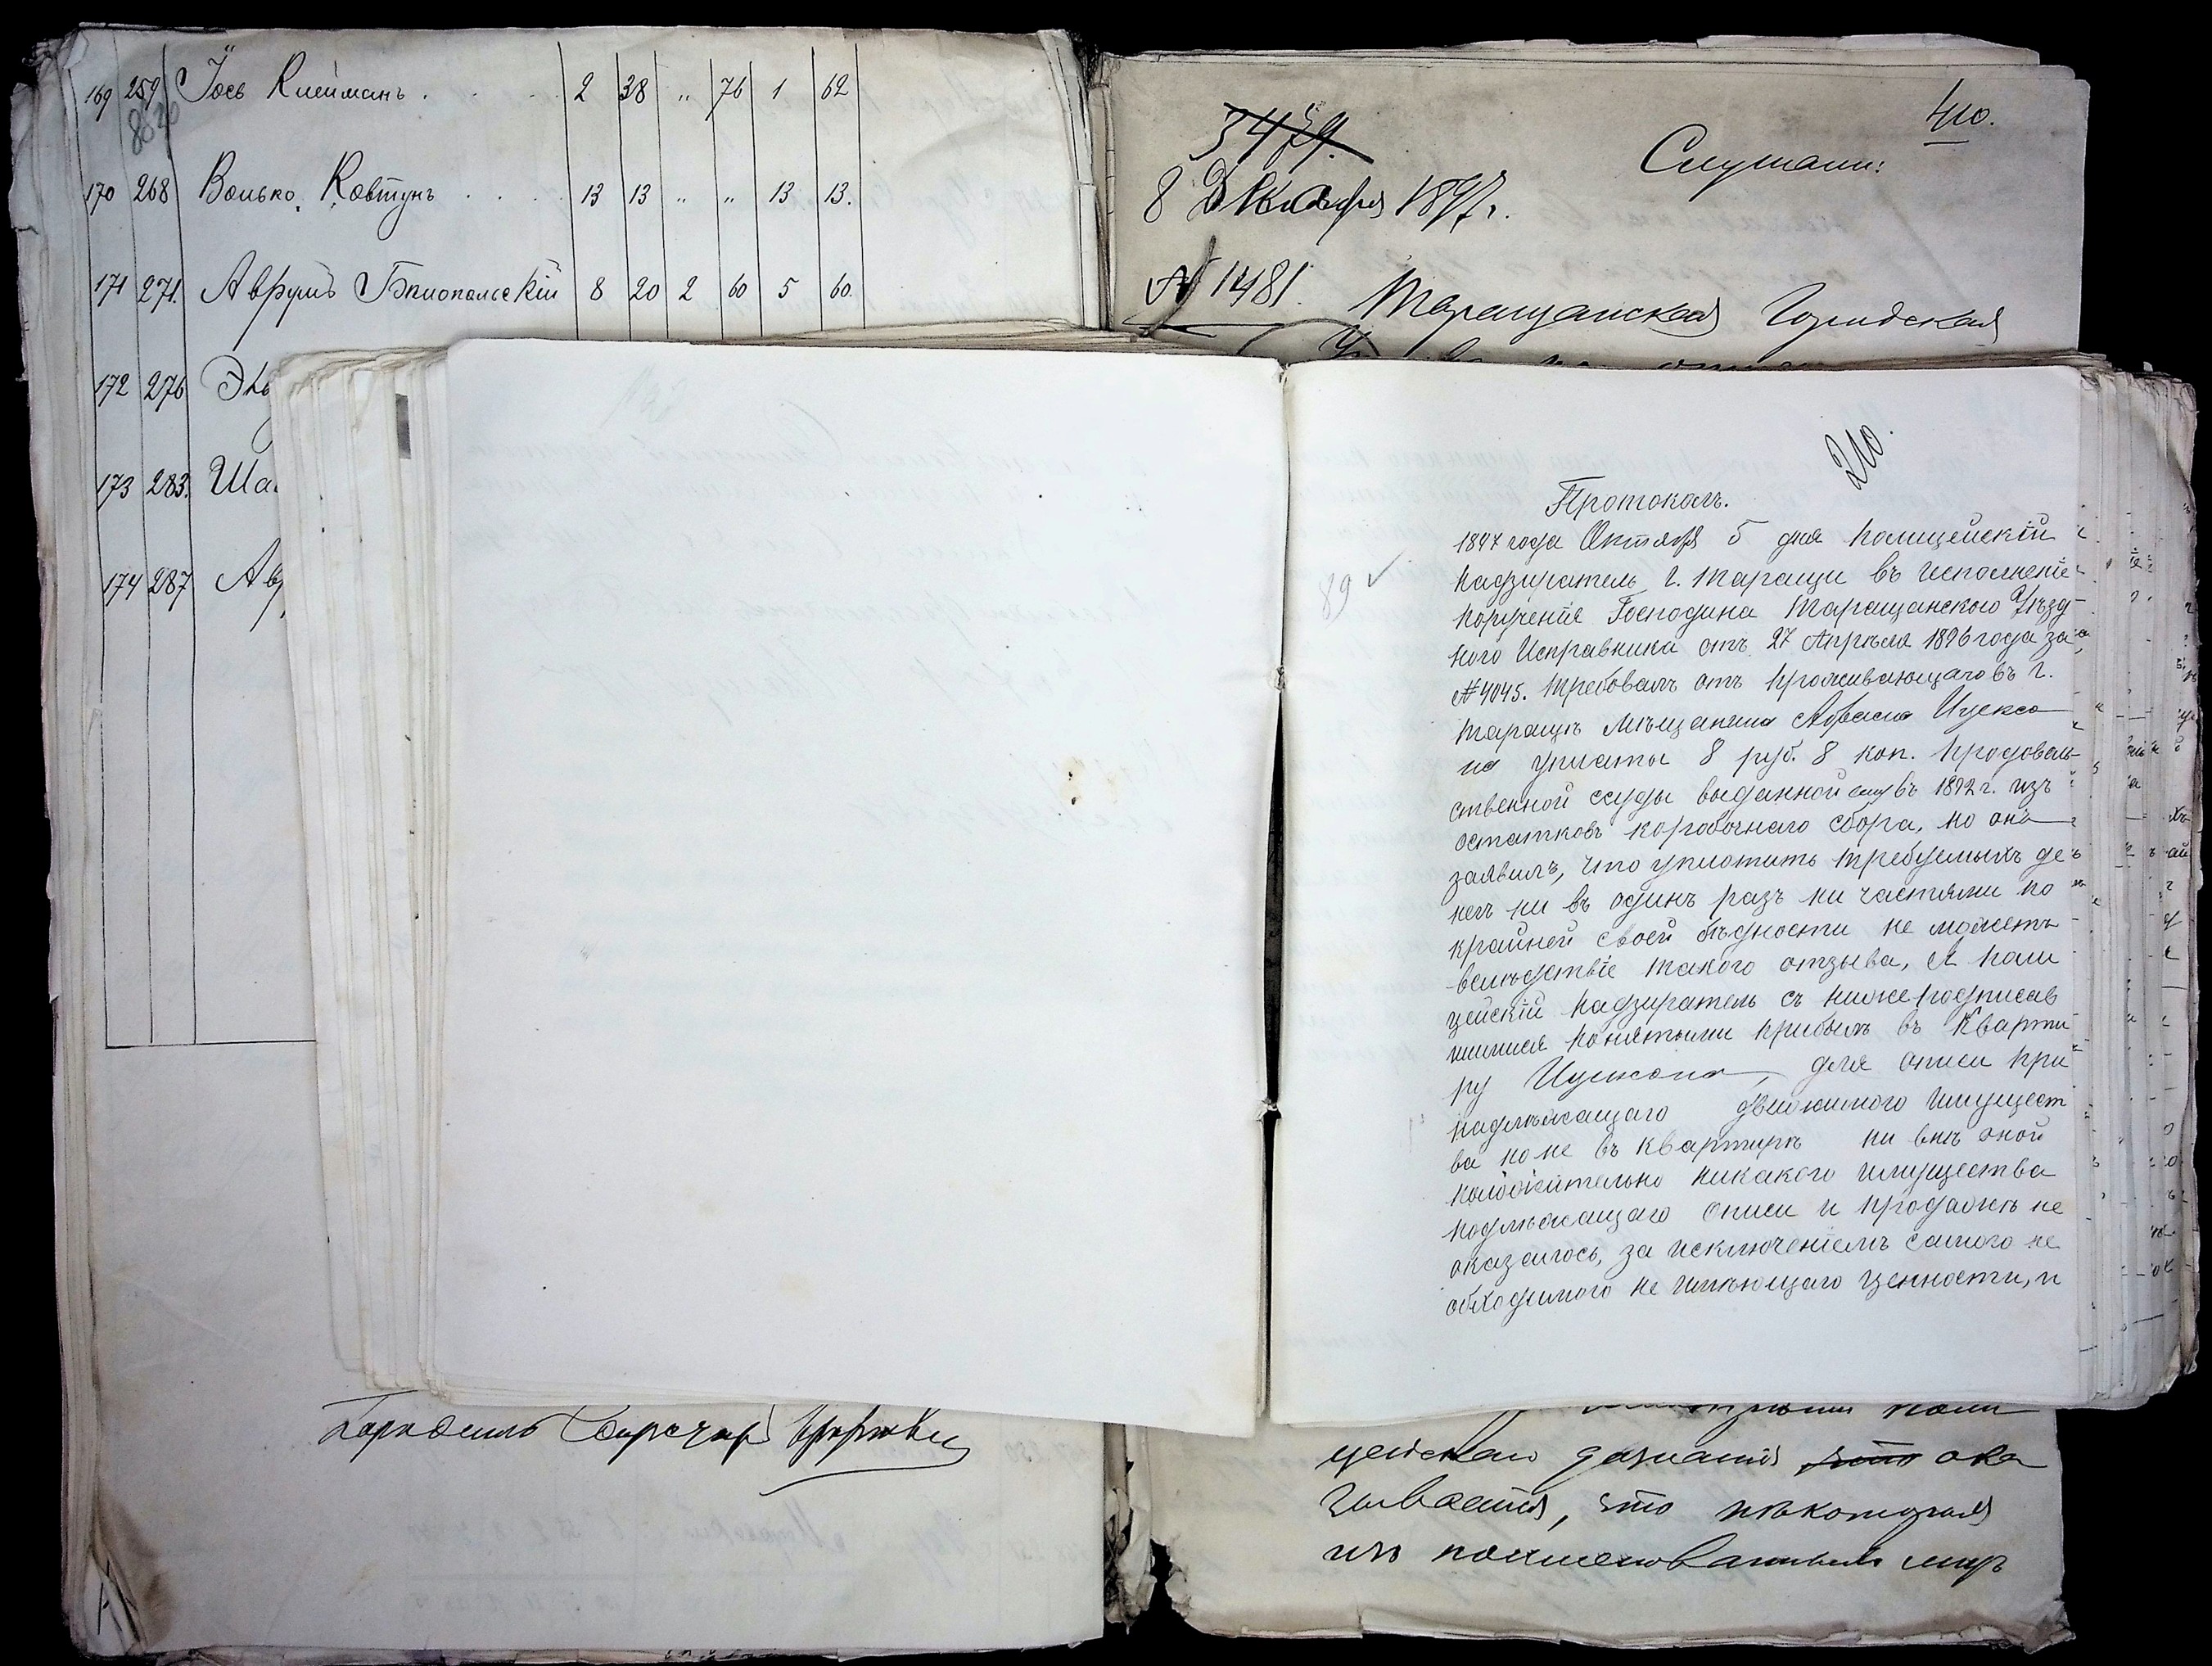 169 259 Іось Клейманъ . . . 2 38 „ 76 1 62
8020
170 268 Волько Ковтунъ . . . 13 13 „ „ 13 13.
171 271. Аврумъ Бѣлопольскій 8 20 2 60 5 60.
172 276
173 283. Ша
174 287 Ав
410.
3479.
Слушали:
8 Декабря 1897 г.
№ 1481.
Таращанская Городская
210.
Протоколъ.
89 ✓
1897 года Октября 5 дня Полицейскій
Надзиратель г. Таращи въ исполненіе
порученія Господина Таращанского Уѣзд-
ного Исправника отъ 27 Апрѣля 1896 года за
№ 4045. требовалъ отъ проживающаго въ г.
Таращѣ мѣщанина
на уплаты 8 руб. 8 коп. продоволь-
ственной ссуды выданной ему въ 1892 г. изъ
остатковъ коробочнаго сбора, но онъ
заявилъ, что уплотить требуемыхъ де-
негъ ни въ одинъ разъ ни частями по
крайней своей бѣдности не можетъ
вслѣдствіе такого отзыва, Я Поли
цейскій Надзиратель съ нижеподписав
шимися понятыми прибылъ въ Кварти
ру для описи при
надлѣжащаго движимого имущест
ва но не въ квартирѣ ни внѣ оной
положительно никакого имущества
подлѣжащаго описи и продажѣ не
оказалось, за исключеніемъ самого не
обходимого не имѣющаго ценности, и
поли
цейскаго дознанія что ока
зывается, что нѣкоторыя
изъ поименованныхъ лицъ